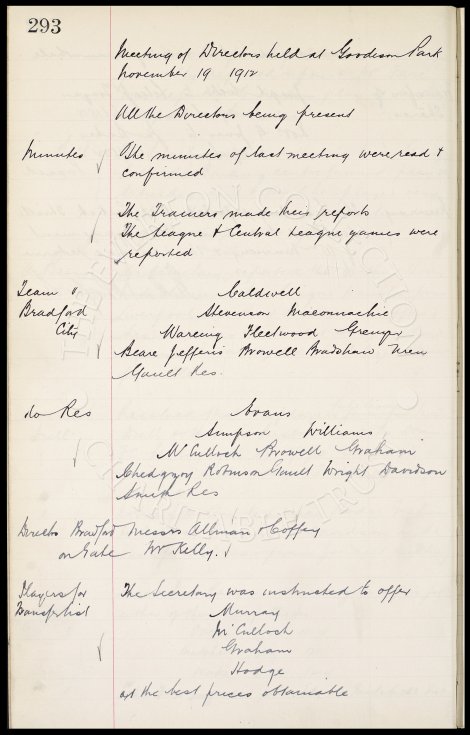 293
Meeting of Directors held at Goodison Park
November 19 1912
All the Directors being present
Minutes The minutes of last meeting were read &
confirmed
The Trainers made their reports
The League & Central League games were
reported
Team v Caldwell
Bradford Stevenson Maconnachie
City Wareing Fleetwood Grenyer
Beare Jefferis Browell Bradshaw Uren
Gault Res.
do Res Evans
Simpson Williams
McCulloch Browell Graham
Chedgzoy Robinson Gault Wright Davidson
Smith Res
Directors Bradford Messrs Allman & Coffey
on Gate Mr Kelly.
Players for The Secretary was instructed to offer
Transfer List Murray
McCulloch
Graham
Hodge
at the best prices obtainable
THE EVERTON COLLECTION
CHARITABLE TRUST